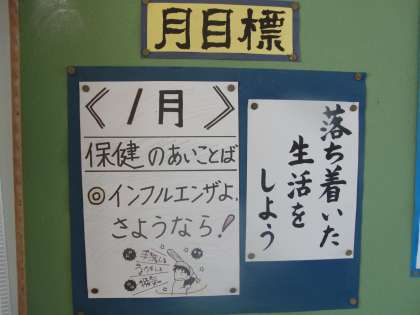 月目標
《1月》
保健のあいことば
◎インフルエンザよ、
さようなら!
落ち着いた
生活を
しよう